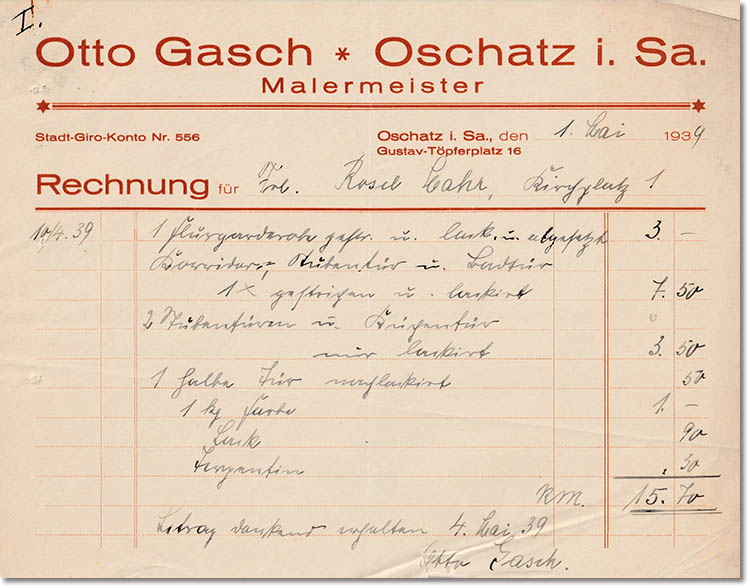 I.
Otto Gasch * Oschatz i. Sa.
Malermeister
Stadt-Giro-Konto Nr. 556
Oschatz i. Sa., den 1. Mai 1939
Gustav-Töpferplatz 16
Rechnung für Frl. Rosel Lahr, Kirchplatz 1
10/4. 39 1 Flurgarderobe gestr. u. lack. u. abgesetzt 3. –
Korridor-, Stubentür u. Badtür
1 x gestrichen u. lackirt 7. 50
2 Stubentüren u. Küchentür
nur lackirt 3. 50
1 halbe Tür nachlackirt 50
1 kg Farbe 1. –
Lack 90
Terpentin . 30
RM. 15. 70
Betrag dankend erhalten 4. Mai 39
Otto Gasch.